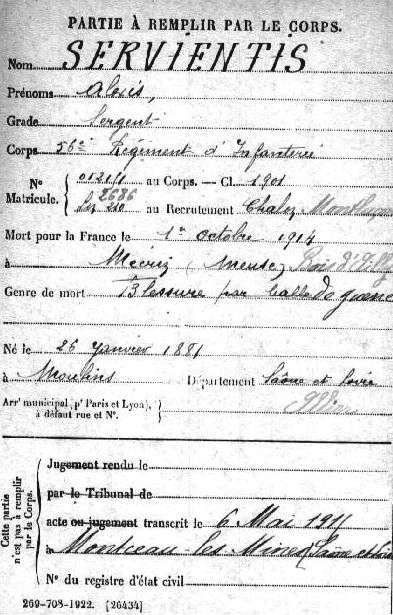 PARTIE À REMPLIR PAR LE CORPS.
Nom SERVIENTIS
Prénoms Aloïs,
Grade Sergent
Corps 56e Régiment d'Infanterie
N° Matricule. au Corps. — Cl. 1901
2686 au Recrutement Chalon Montluçon
Mort pour la France le 1er octobre 1914
à (Meuse) Bois d'Ailly
Genre de mort Blessure par balle de guerre
Né le 26 Janvier 1881
à Moulins Département Saône et Loire
Arrt municipal (pr Paris et Lyon), à défaut rue et N°. Allier
Cette partie n'est pas à remplir par le Corps.
Jugement rendu le
par le Tribunal de
acte ou jugement transcrit le 6 Mai
à Montceau-les-Mines (Saône et Loire
N° du registre d'état civil
269-708-1922. [26434]